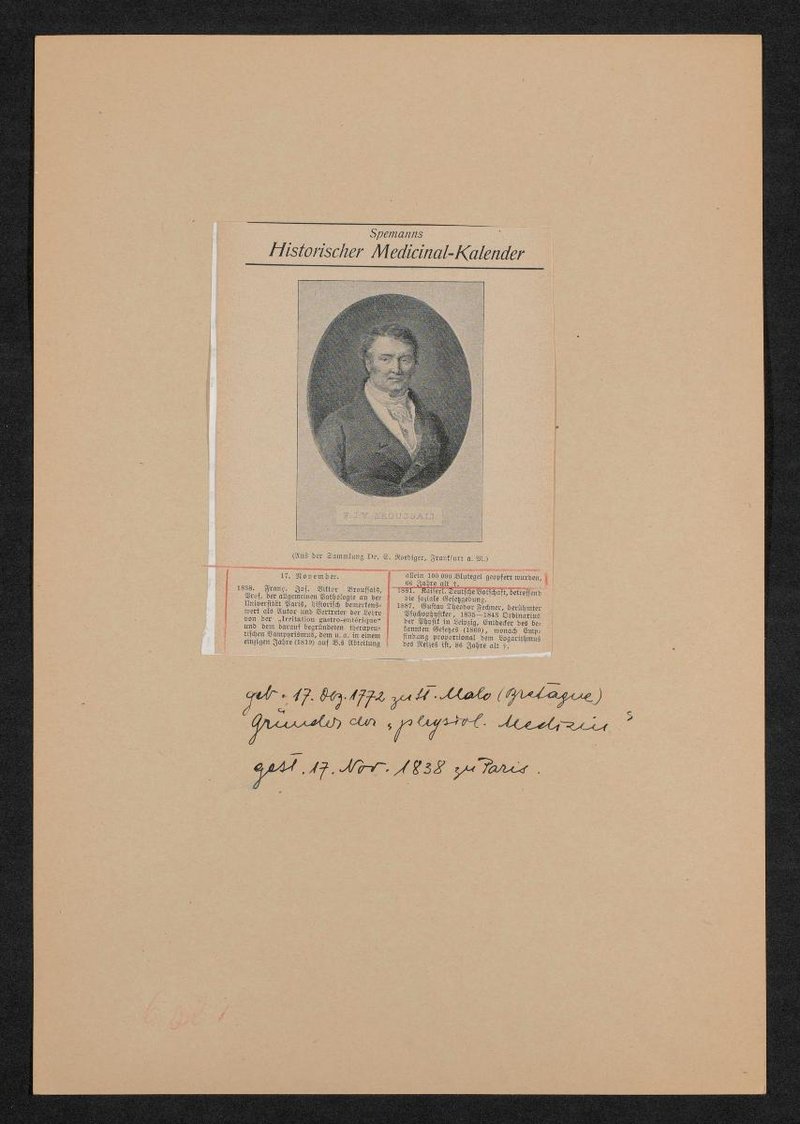 Spemanns
Historischer Medicinal-Kalender
F.J.V. BROUSSAIS
(Aus der Sammlung Dr. E. Roediger, Frankfurt a. M.)
17. November.
1838. Franç. Jos. Viktor Broussais,
Prof. der allgemeinen Pathologie an der
Universität Paris, historisch bemerkens-
wert als Autor und Vertreter der Lehre
von der „Irritation gastro-entérique“
und dem darauf begründeten therapeu-
tischen Vampyrismus, dem u. a. in einem
einzigen Jahre (1819) auf B.s Abteilung
allein 100 000 Blutegel geopfert wurden,
66 Jahre alt †.
1881. Kaiserl. Deutsche Botschaft, betreffend
die soziale Gesetzgebung.
1887. Gustav Theodor Fechner, berühmter
Psychophysiker, 1835—1843 Ordinarius
der Physik in Leipzig, Entdecker des be-
kannten Gesetzes (1860), wonach Emp-
findung proportional dem Logarithmus
des Reizes ist, 86 Jahre alt †.
geb. 17. Dez. 1772 zu St. Malo (Bretagne)
Gründer der „physiol. Medizin“
gest. 17. Nov. 1838 zu Paris.